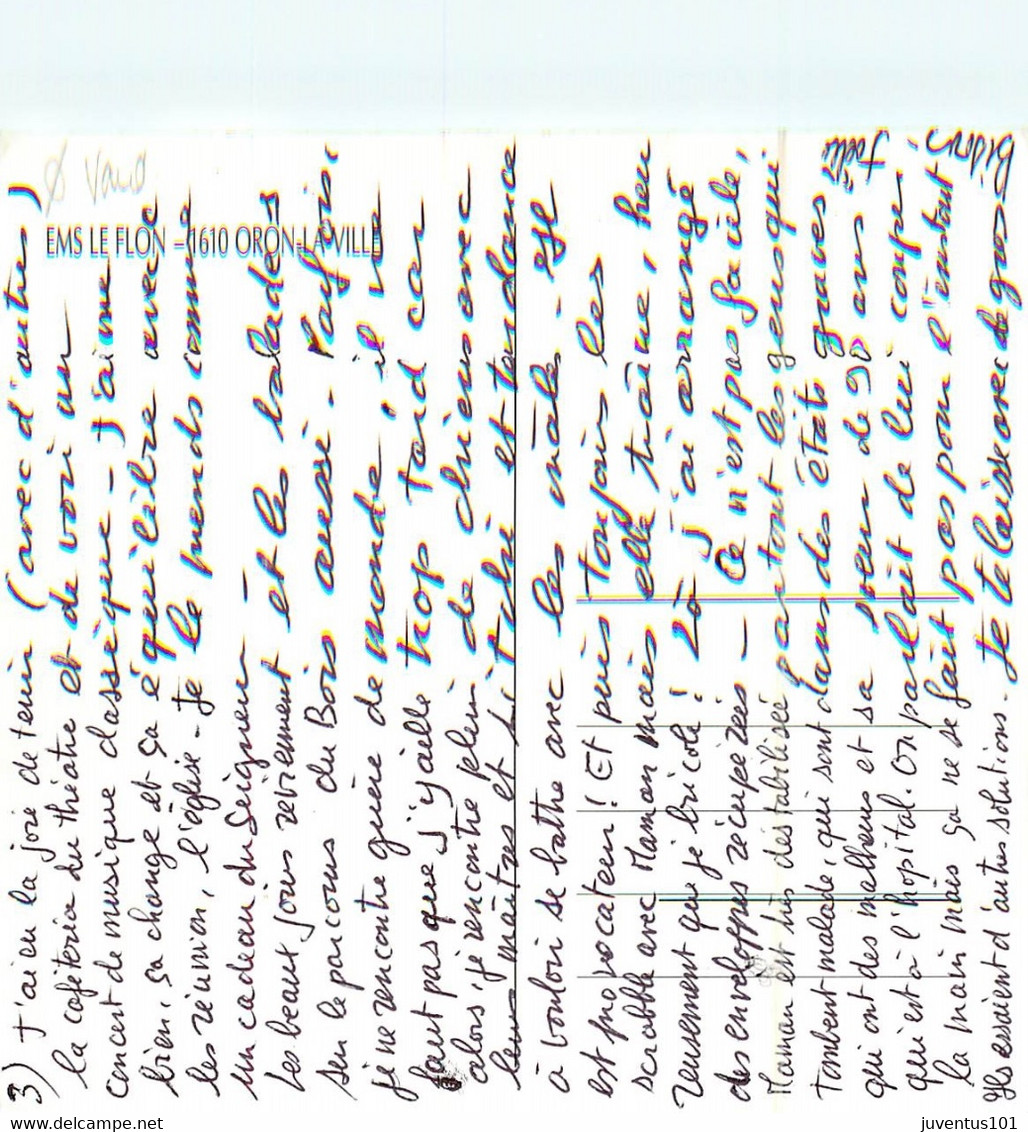 Vaud
EMS LE FLON – 1610 ORON-LA-VILLE
3) J'ai eu la joie de tenir (avec d'autres)
la cafétéria du théâtre et de voir un
concert de musique classique - J'aime
bien, ça change et ça équilibre avec
les réunion, l'église. Je le prends comme
un cadeau du Seigneur -
Les beaux jours reviennent et les balades
sur le parcours du Bois aussi - Parfois,
je ne rencontre guère de monde, il ne
faut pas que j'y aille trop tard car
alors, je rencontre plein de chiens avec
leurs maîtres et si Tahi et tendance
à vouloir se battre avec les mâles - elle
est provocateur! Et puis toujours les
scrabble avec Maman mais elle traîne, heu
reusement que je bricole! Là j'ai arrangé
des enveloppes récupérées - Ce n'est pas facile,
Maman est très déstabilisée partout les gens qui
tombent malade, qui sont dans des états graves
qui ont des malheurs et sa soeur de 90 ans
qui est à l'hôpital. On parlait de lui couper
la main mais ça ne se fait pas pour l'instant
Ils essaient d'autres solutions. Je te laisse avec de gros
bisous